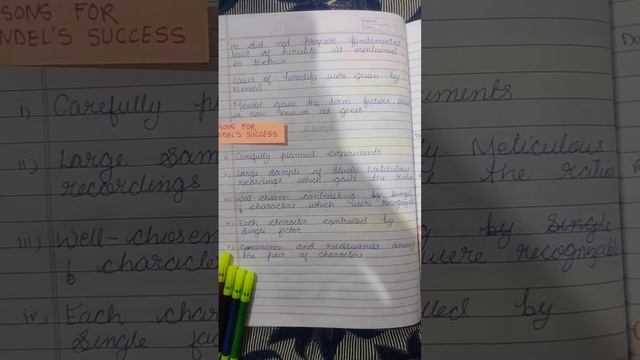 He did not propose fundamental
laws of heredity as mentioned
in
Laws of heredity were given by
Mendel
Mendel gave the term factors, which
is now known as genes.
SONS FOR
NDEL'S SUCCESS
i) Carefully planned experiments
Large sample of study. Meticulous
recordings which gave the ratios
Well-chosen contrasting by single
6 characters which were recognizable
Each character controlled by
single factor
Dominance and recessiveness among
the pair of characters
SONS FOR
NDEL'S SUCCESS
i) Carefully
ii) Large sam
recordings
iii) Well-chosen
6 character
iv) Each char
single fac
ments
Meticulous
the ratios
by single
were recognizable
lled by